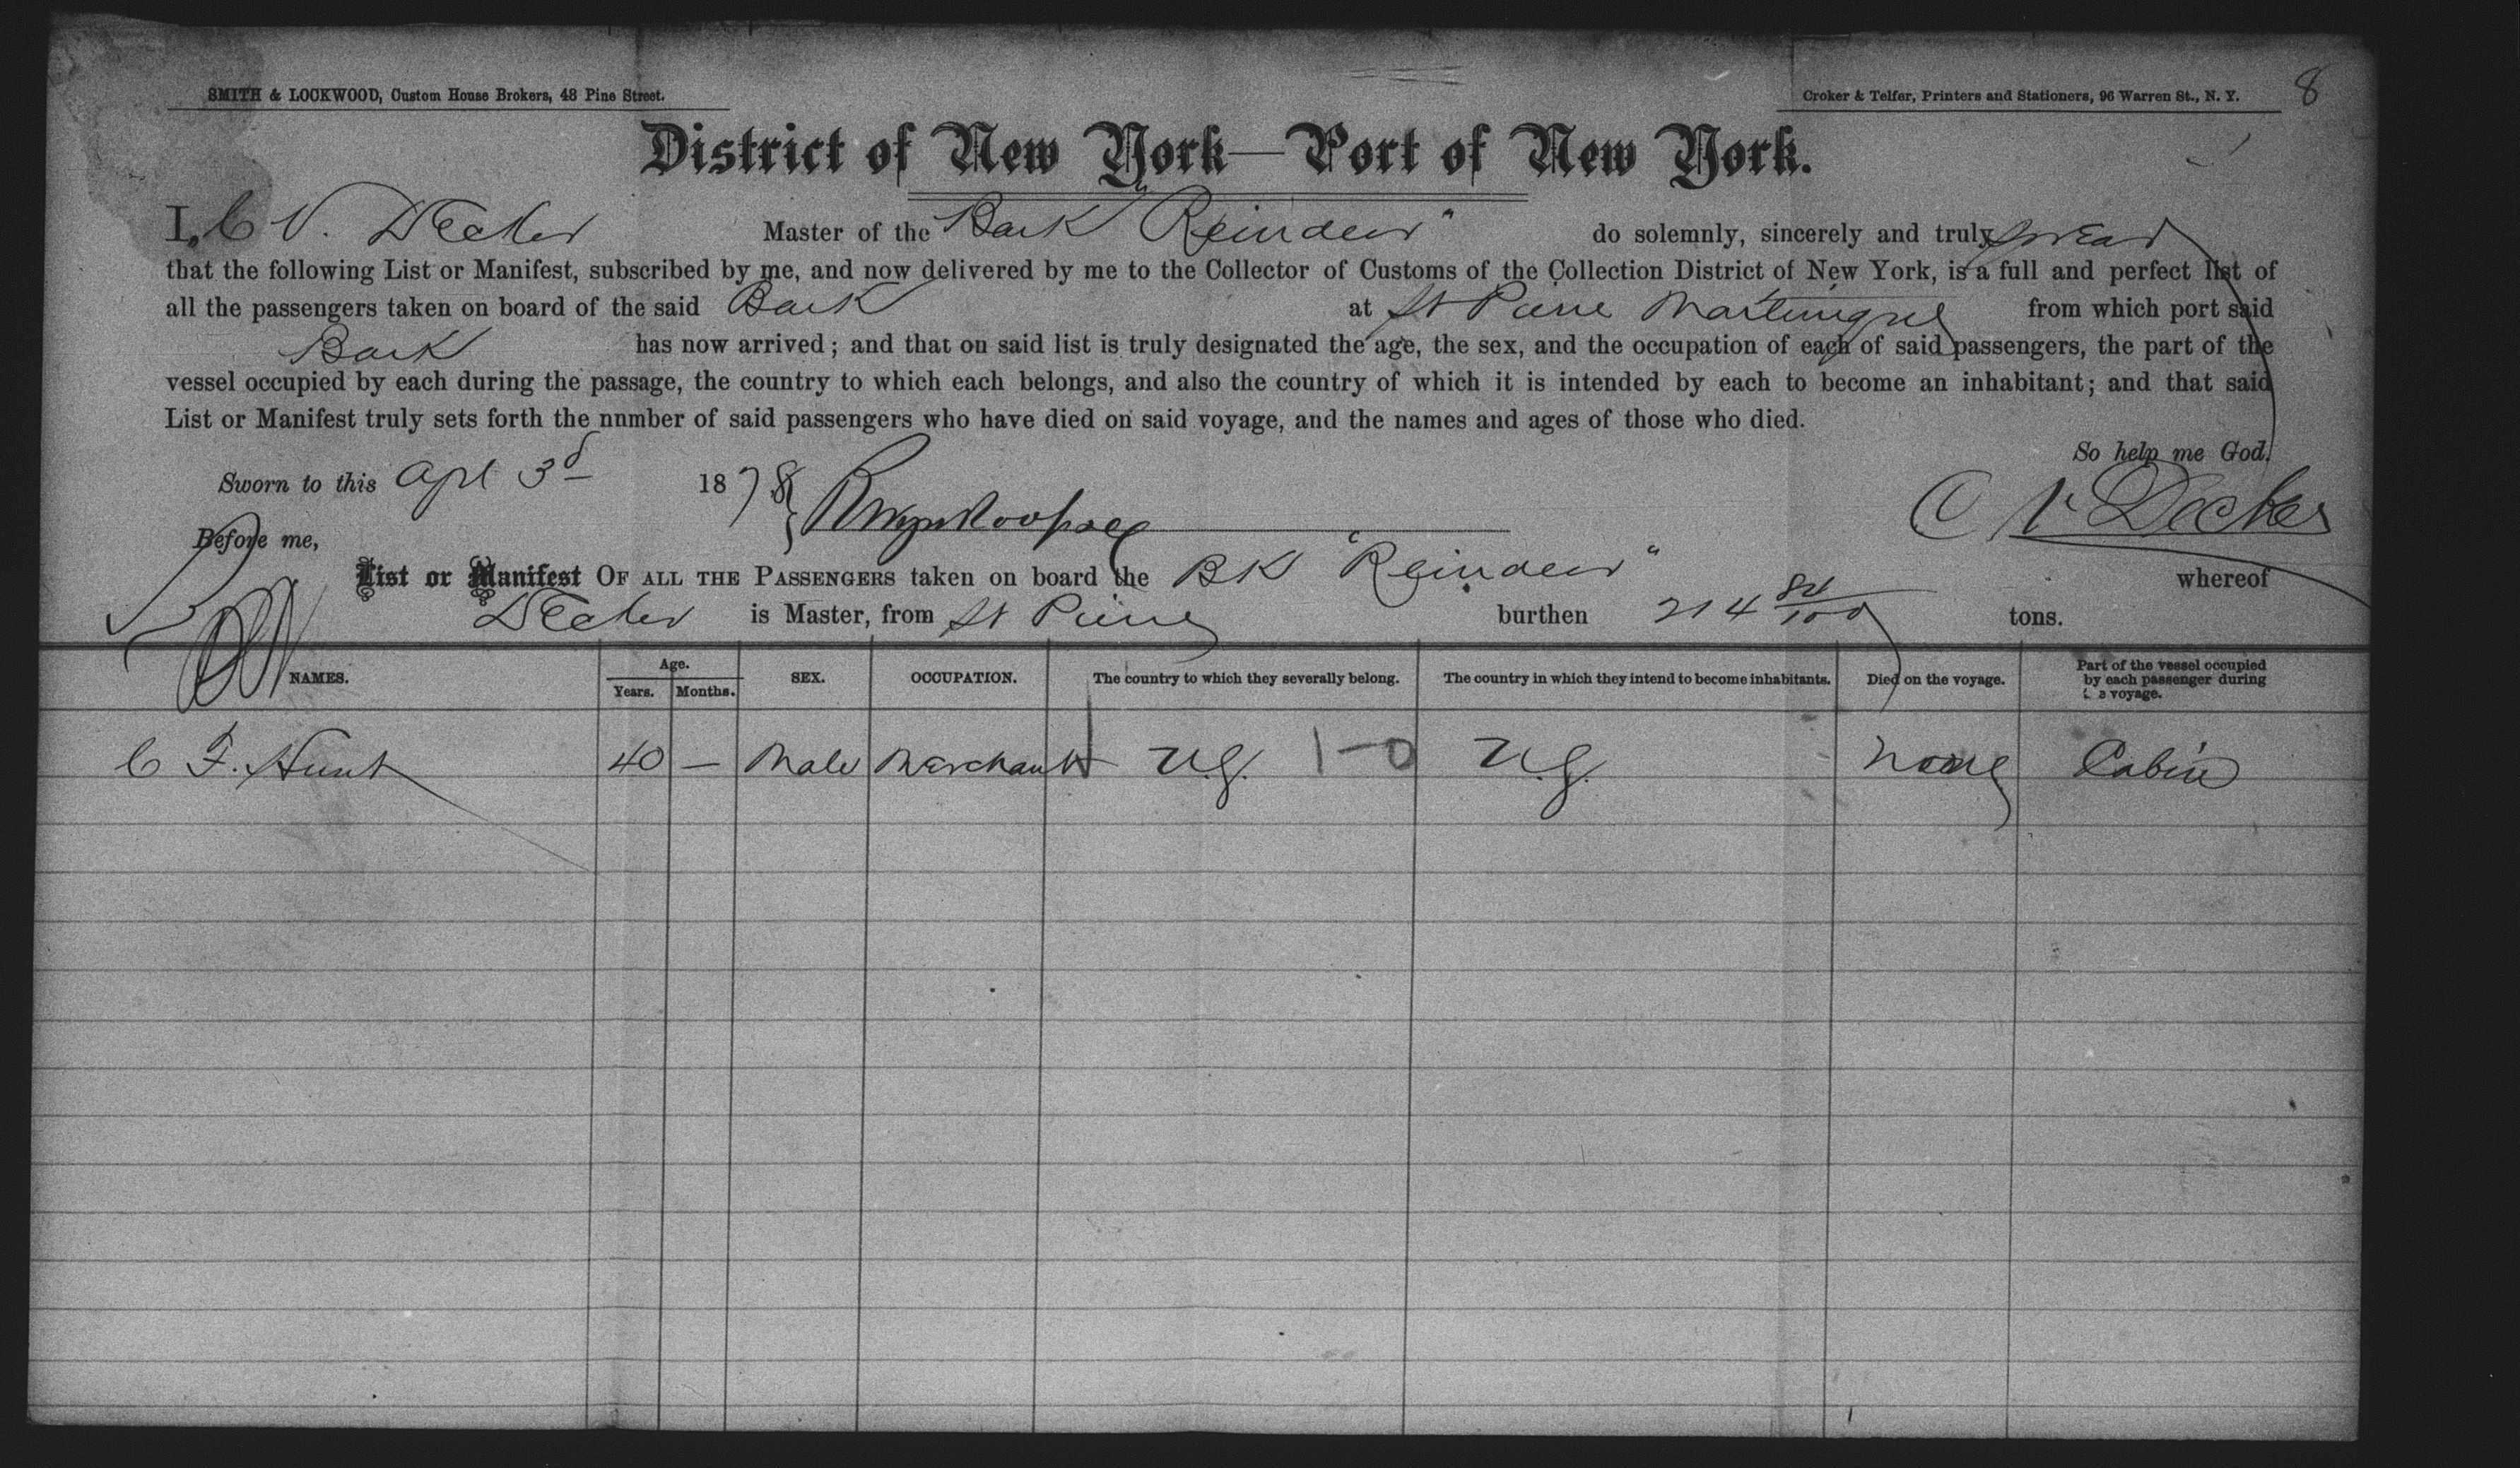 SMITH & LOCKWOOD, Custom House Brokers, 48 Pine Street.
Croker & Telfer, Printers and Stationers, 96 Warren St., N. Y. 8
District of New York—Port of New York.
I, C V. Decker Master of the Bark "Reindeer" do solemnly, sincerely and truly swear
that the following List or Manifest, subscribed by me, and now delivered by me to the Collector of Customs of the Collection District of New York, is a full and perfect list of
all the passengers taken on board of the said Bark at St Pierre Martinique from which port said
Bark has now arrived; and that on said list is truly designated the age, the sex, and the occupation of each of said passengers, the part of the
vessel occupied by each during the passage, the country to which each belongs, and also the country of which it is intended by each to become an inhabitant; and that said
List or Manifest truly sets forth the nnmber of said passengers who have died on said voyage, and the names and ages of those who died.
So help me God.
Sworn to this Apl 3d 1878
C V Decker
Before me,
List or Manifest OF ALL THE PASSENGERS taken on board the Bk "Reindeer" whereof
Decker is Master, from St Pierre burthen 214 84/100 tons.
NAMES. Age. Years. Months. SEX. OCCUPATION. The country to which they severally belong. The country in which they intend to become inhabitants. Died on the voyage. Part of the vessel occupied by each passenger during voyage.
C F. Hunt 40 — Male Merchant U.S. 1-0 U.S. None Cabin